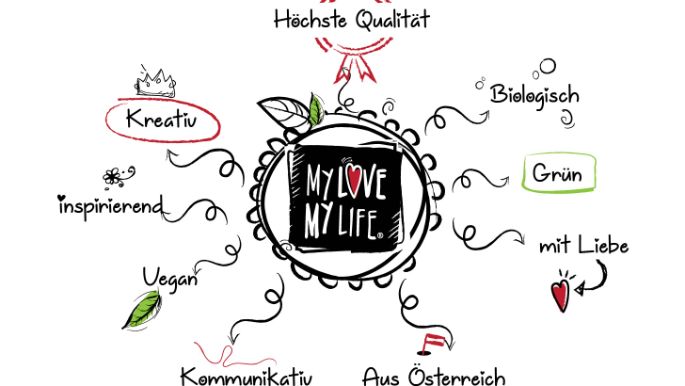 Höchste Qualität
Biologisch
Kreativ
Grün
inspirierend
mit Liebe
Vegan
Kommunikativ
Aus Österreich
MY LOVE
MY LIFE®